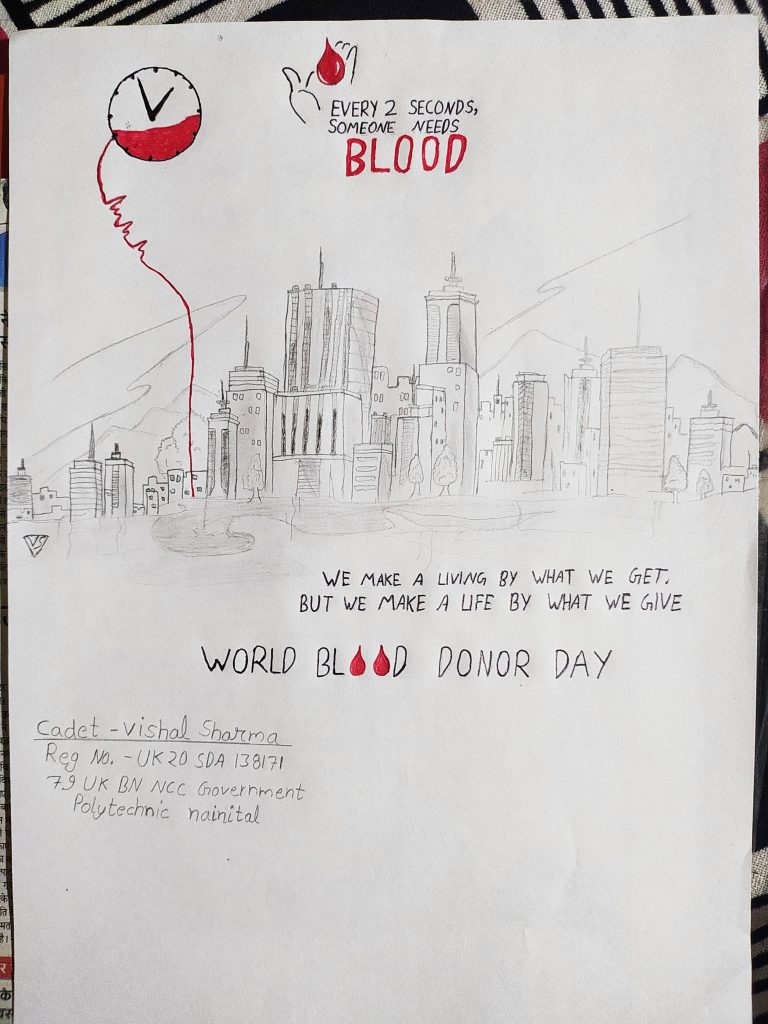 EVERY 2 SECONDS,
SOMEONE NEEDS
BLOOD
VS
WE MAKE A LIVING BY WHAT WE GET.
BUT WE MAKE A LIFE BY WHAT WE GIVE
WORLD BLOOD DONOR DAY
Cadet - Vishal Sharma
Reg No. - UK 20 SDA 138171
79 UK BN NCC Government
Polytechnic nainital